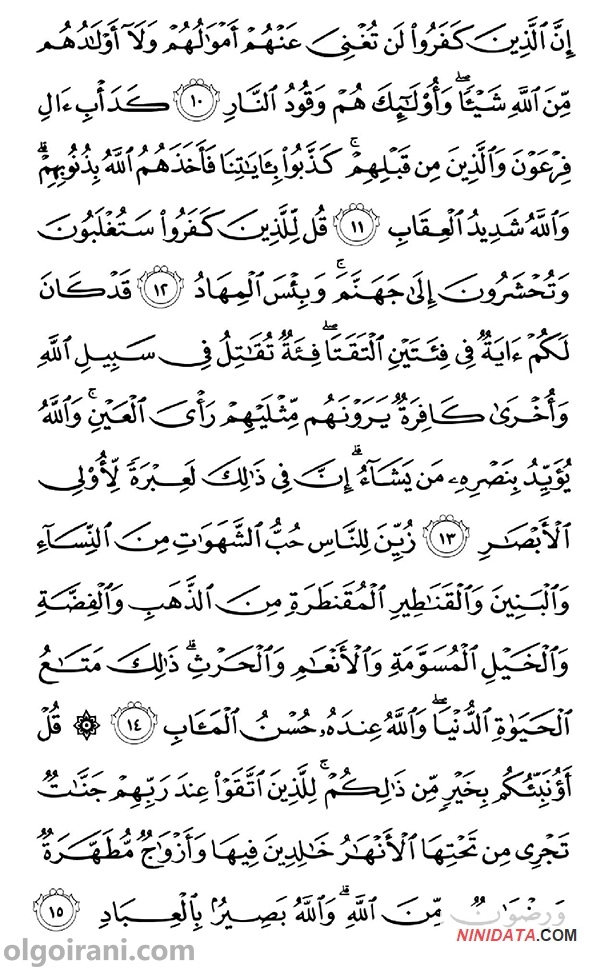 إِنَّ ٱلَّذِينَ كَفَرُوا۟ لَن تُغْنِىَ عَنْهُمْ أَمْوَٰلُهُمْ وَلَآ أَوْلَـٰدُهُم
مِّنَ ٱللَّهِ شَيْـًٔا ۖ وَأُو۟لَـٰٓئِكَ هُمْ وَقُودُ ٱلنَّارِ ١٠ كَدَأْبِ ءَالِ
فِرْعَوْنَ وَٱلَّذِينَ مِن قَبْلِهِمْ ۚ كَذَّبُوا۟ بِـَٔايَـٰتِنَا فَأَخَذَهُمُ ٱللَّهُ بِذُنُوبِهِمْ ۗ
وَٱللَّهُ شَدِيدُ ٱلْعِقَابِ ١١ قُل لِّلَّذِينَ كَفَرُوا۟ سَتُغْلَبُونَ
وَتُحْشَرُونَ إِلَىٰ جَهَنَّمَ ۚ وَبِئْسَ ٱلْمِهَادُ ١٢ قَدْ كَانَ
لَكُمْ ءَايَةٌ فِى فِئَتَيْنِ ٱلْتَقَتَا ۖ فِئَةٌ تُقَـٰتِلُ فِى سَبِيلِ ٱللَّهِ
وَأُخْرَىٰ كَافِرَةٌ يَرَوْنَهُم مِّثْلَيْهِمْ رَأْىَ ٱلْعَيْنِ ۚ وَٱللَّهُ
يُؤَيِّدُ بِنَصْرِهِۦ مَن يَشَآءُ ۗ إِنَّ فِى ذَٰلِكَ لَعِبْرَةً لِّأُو۟لِى
ٱلْأَبْصَـٰرِ ١٣ زُيِّنَ لِلنَّاسِ حُبُّ ٱلشَّهَوَٰتِ مِنَ ٱلنِّسَآءِ
وَٱلْبَنِينَ وَٱلْقَنَـٰطِيرِ ٱلْمُقَنطَرَةِ مِنَ ٱلذَّهَبِ وَٱلْفِضَّةِ
وَٱلْخَيْلِ ٱلْمُسَوَّمَةِ وَٱلْأَنْعَـٰمِ وَٱلْحَرْثِ ۗ ذَٰلِكَ مَتَـٰعُ
ٱلْحَيَوٰةِ ٱلدُّنْيَا ۖ وَٱللَّهُ عِندَهُۥ حُسْنُ ٱلْمَـَٔابِ ١٤ ۞ قُلْ
أَؤُنَبِّئُكُم بِخَيْرٍ مِّن ذَٰلِكُمْ ۚ لِلَّذِينَ ٱتَّقَوْا۟ عِندَ رَبِّهِمْ جَنَّـٰتٌ
تَجْرِى مِن تَحْتِهَا ٱلْأَنْهَـٰرُ خَـٰلِدِينَ فِيهَا وَأَزْوَٰجٌ مُّطَهَّرَةٌ
وَرِضْوَٰنٌ مِّنَ ٱللَّهِ ۗ وَٱللَّهُ بَصِيرٌۢ بِٱلْعِبَادِ ١٥
NINIDATA.COM
olgoirani.com